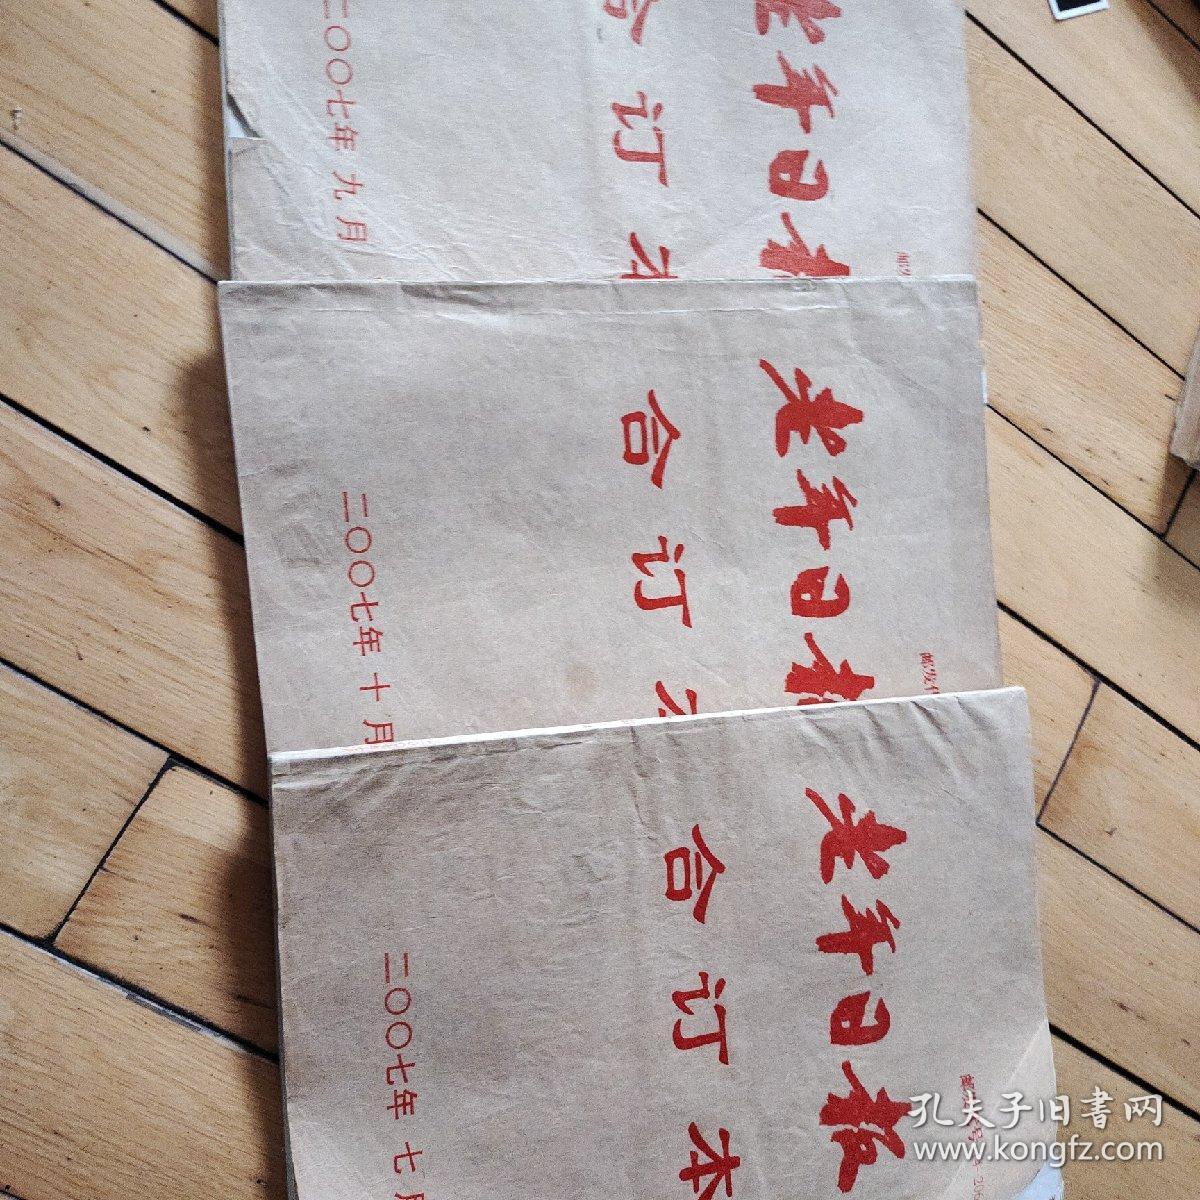 老年日报
合订
二〇〇七年九月
老年日报
合订本
二〇〇七年十月
老年日报
合订本
二〇〇七年七月
孔夫子旧书网
www.kongfz.com